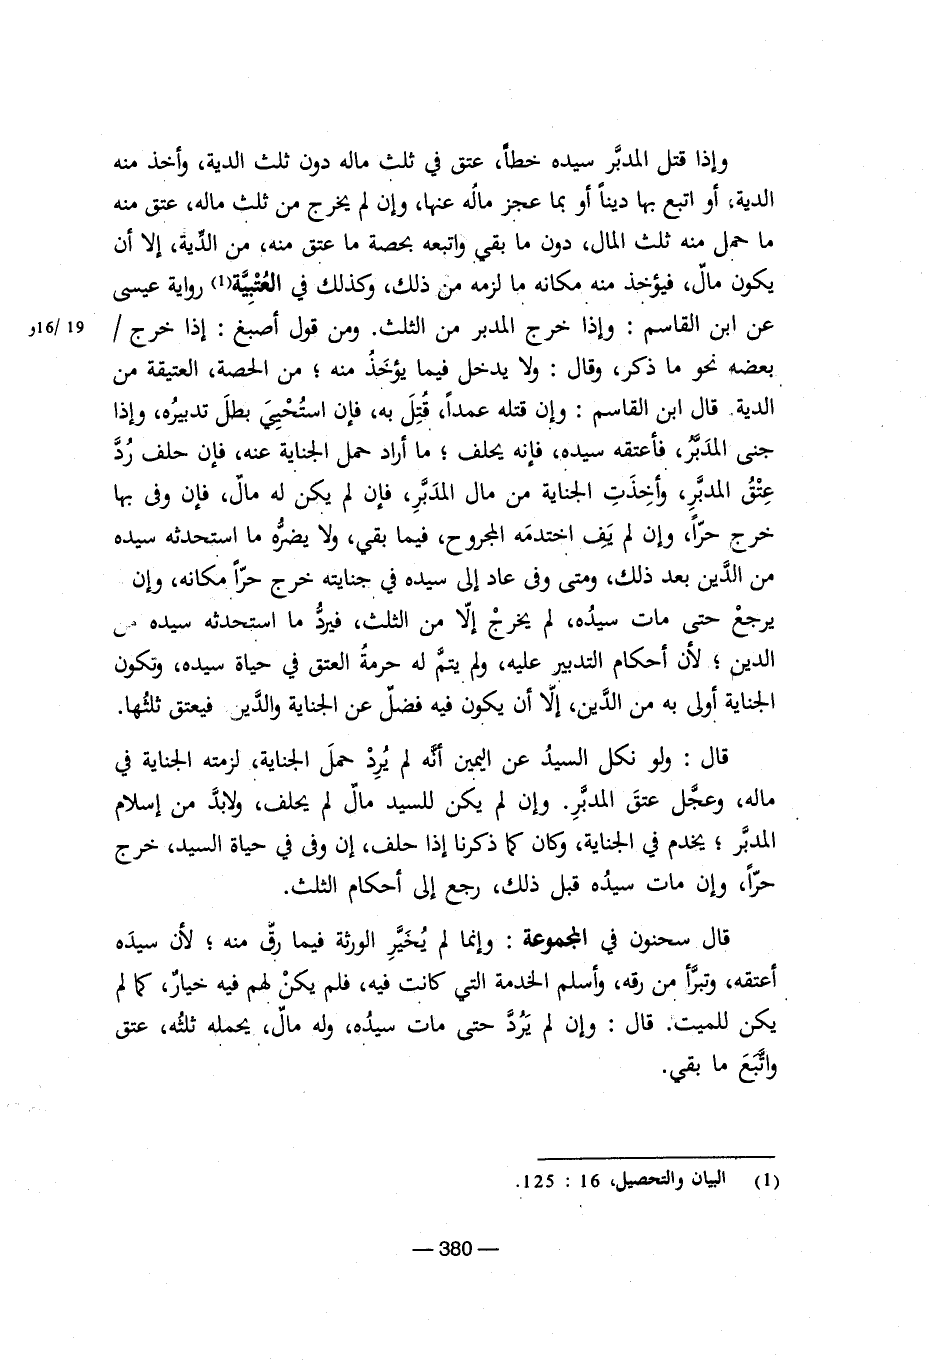 وإذا قتل المدبَّر سيده خطأً، عتق في ثلث ماله دون ثلث الدية، وأخذ منه
الدية، أو اتبع بها ديناً أو بما عجز مالُه عنها، وإن لم يخرج من ثلث ماله، عتق منه
ما حمل منه ثلث المال، دون ما بقي واتبعه بحصة ما عتق منه، من الدِّية، إلا أن
يكون مالٌ، فيؤخذ منه مكانه ما لزمه من ذلك، وكذلك في العُتْبِيَّة(1) رواية عيسى
عن ابن القاسم : وإذا خرج المدبر من الثلث. ومن قول أصبغ : إذا خرج / 19 /16و
بعضه نحو ما ذكر، وقال : ولا يدخل فيما يؤخَذُ منه ؛ من الحصة، العتيقة من
الدية. قال ابن القاسم : وإن قتله عمداً، قُتِلَ به، فإن استُحْيِيَ بطلَ تدبيرُه، وإذا
جنى المدَبَّرُ، فأعتقه سيده، فإنه يحلف ؛ ما أراد حمل الجناية عنه، فإن حلف رُدَّ
عِتْقُ المدبَّرِ، وأخِذَتِ الجناية من مال المدَبَّرِ، فإن لم يكن له مالٌ، فإن وفى بها
خرج حرّاً، وإن لم يَفِ اختدمَه المجروح، فيما بقي، ولا يضرُّه ما استحدثه سيده
من الدَّين بعد ذلك، ومتى وفى عاد إلى سيده في جنايته خرج حرّاً مكانه، وإن
يرجعْ حتى مات سيدُه، لم يخرجْ إلّا من الثلث، فيردُّ ما استحدثه سيده من
الدين ؛ لأن أحكام التدبير عليه، ولم يتمَّ له حرمةُ العتق في حياة سيده، وتكون
الجناية أولى به من الدَّين، إلّا أن يكون فيه فضلٌ عن الجناية والدَّين فيعتق ثلثُها.
قال : ولو نكل السيدُ عن اليمين أنَّه لم يُرِدْ حملَ الجناية، لزمته الجناية في
ماله، وعجَّل عتقَ المدبَّرِ. وإن لم يكن للسيد مالٌ لم يحلف، ولابدَّ من إسلام
المدبَّر ؛ يخدم في الجناية، وكان كما ذكرنا إذا حلف، إن وفى في حياة السيد، خرج
حرّاً، وإن مات سيدُه قبل ذلك، رجع إلى أحكام الثلث.
قال سحنون في المجموعة : وإنما لم يُخَيَّرِ الورثة فيما رقَّ منه ؛ لأن سيدَه
أعتقه، وتبرَّأ من رقه، وأسلم الخدمة التي كانت فيه، فلم يكنْ لهم فيه خيارٌ، كما لم
يكن للميت. قال : وإن لم يَرُدَّ حتى مات سيدُه، وله مالٌ، يحمله ثلثُه، عتق
واتُّبَعَ ما بقي.
(1) البيان والتحصيل، 16 : 125.
— 380 —